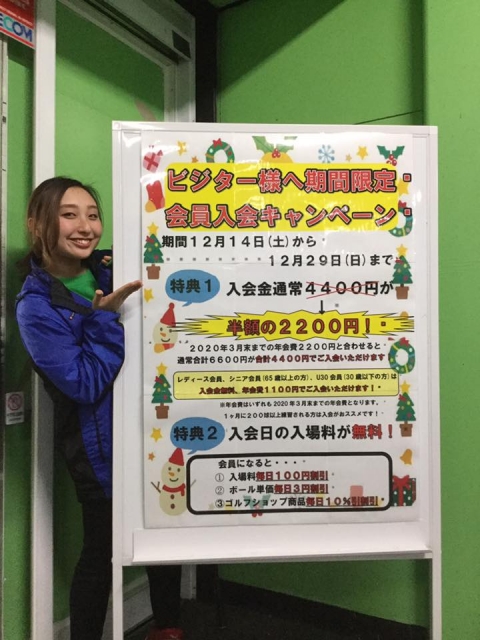 ECOM
ビジター様へ期間限定・
会員入会キャンペーン・
期間12月14日(土)から・
12月29日(日)まで
特典1 入会金通常4400円が
半額の2200円！・
2020年3月末までの年会費2200円と合わせると・
通常合計6600円が合計4400円でご入会いただけます
レディース会員、シニア会員(65歳以上の方)、U30会員(30歳以下の方)は
入会金無料、年会費1100円でご入会いただけます！・
※年会費はいずれも2020年3月末までの年会費となります。
1ヶ月に200球以上練習される方は入会がおススメです！・
特典2 入会日の入場料が無料！・
会員になると・・・
① 入場料毎日100円割引
② ボール単価毎日3円割引
③ゴルフショップ商品毎日10％割引